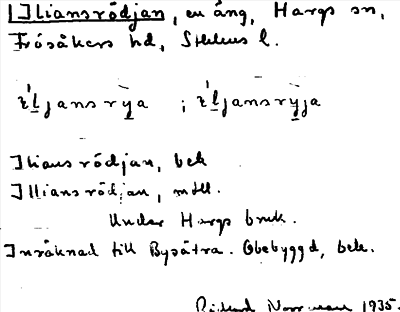 Ilians rödjan, en äng, Hargs sn,
Frösåkers hd, Sthlms l.
ɪ̀l̲jansrỳa ; ɪ̀l̲jansrỳja
Ilians rödjan, bek
Illians rödjan, mtl.
Under Hargs bruk.
Inräknad till Bysätra. Obebyggd, bek.
Rickard Norrman 1935.